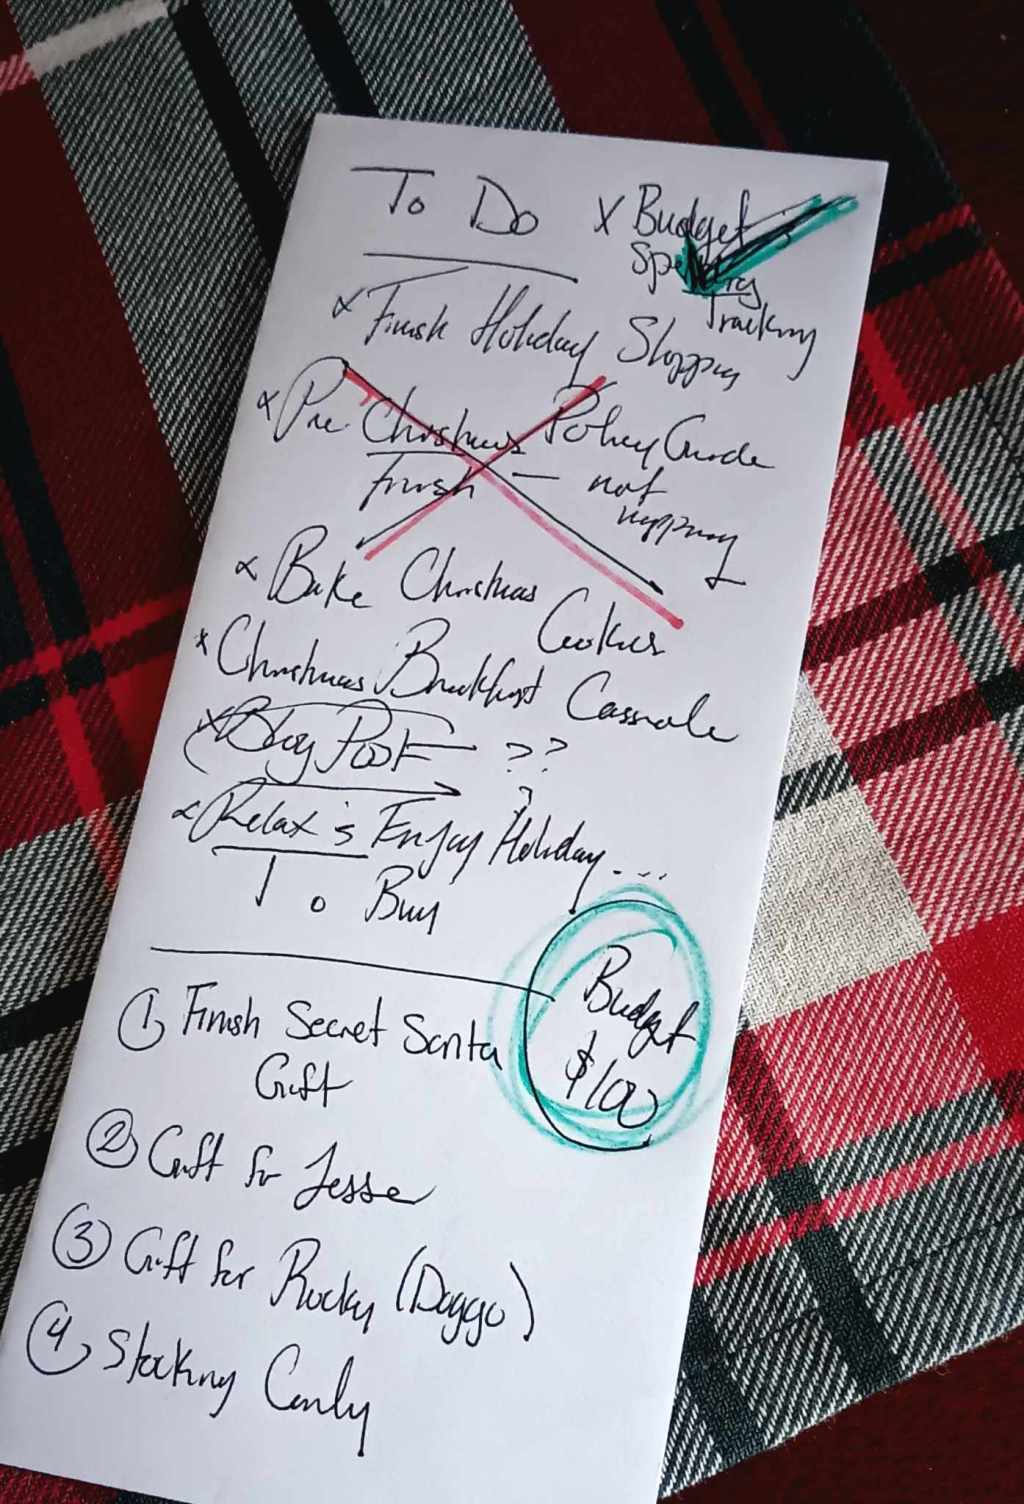 To Do
x Budget &
Spending
Tracking
x Finish Holiday Shopping
x Pre Christmas Policy Guide
Finish — not
happening
x Bake Christmas
Cookies
x Christmas Breakfast Casserole
x Blog Post ???
x Relax & Enjoy Holiday...
To Buy
Budget
$100
1 Finish Secret Santa
Gift
2 Gift for Jesse
3 Gift for Rocky (Doggo)
4 Stocking Candy